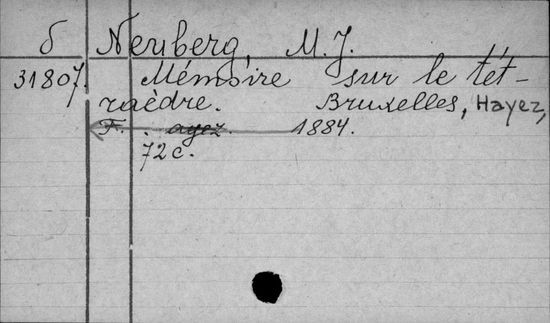 б Neuberg, M. J.
31807. Mémoire sur le tét-
raèdre. Bruxelles, Hayez,
F. . ayez. 1884.
72 c.